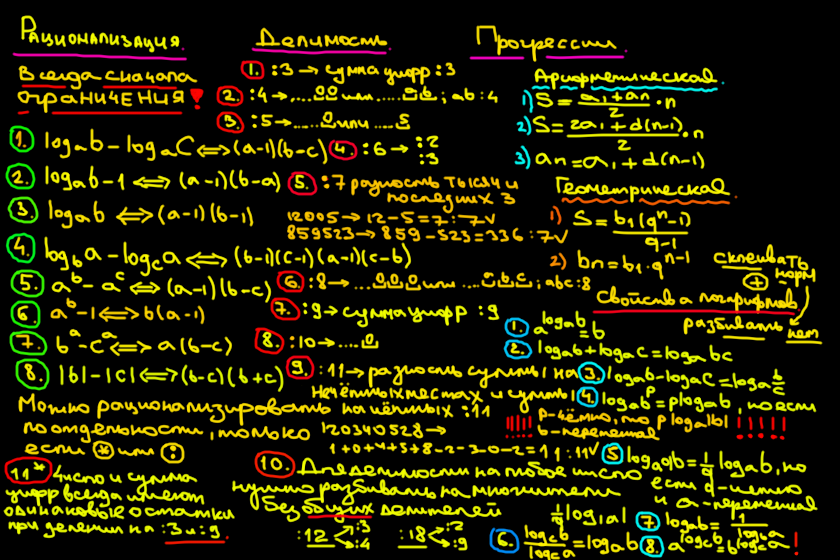 Рационализация
Всегда сначала
ограничения!
1. logab - logac <=> (a-1)(b-c)
2. logab - 1 <=> (a-1)(b-a)
3. logab <=> (a-1)(b-1)
4. logba - logca <=> (b-1)(c-1)(a-1)(c-b)
5. a^b - a^c <=> (a-1)(b-c)
6 a^b - 1 <=> b(a-1)
7. b^a - c^a <=> a(b-c)
8. |b| - |c| <=> (b-c)(b+c)
Можно рационализировать
по отдельности, только
если * или :
11* Число и сумма
цифр всегда имеют
одинаковые остатки
при делении на :3 и :9.
Делимость
1. :3 → сумма цифр :3
2. :4 → ....00 или ....ab; ab:4
3. :5 → ....0 или ....5
4. :6 → :2
:3
5. :7 разность тысяч и
последних 3
12005 → 12-5=7 :7 v
859523 → 859-523=336 :7 v
6. :8 → ...000 или ...abc; abc:8
7. :9 → сумма цифр :9
8. :10 → ....0
9. :11 → разность суммы на
нечётных местах и суммы
на чётных :11
120340528 →
1+0+4+5+8-2-3-0-2=11 :11 v
10. Для делимости на любое число
нужно разбивать на множители
без общих делителей
:12 :3
:4
:18 :2
:9
Прогрессии
Арифметическая
1) S = (a1+an)/2 · n
2) S = (2a1+d(n-1))/2 · n
3) an = a1 + d(n-1)
Геометрическая
1) S = b1(q^n-1)/(q-1)
2) bn = b1 · q^(n-1)
склеивать
+ норм
Свойства логарифмов
разбивать нет
1. a^logab = b
2. logab + logac = logabc
3. logab - logac = loga b/c
4. logab^p = p logab, но если
!!!!! p-чётно, то p loga|b| !!!!!
b-переменная
5 loga^qb = 1/q logab, но
если q-чётно
и a-переменная
1/q log|a|
6. logcb/logca = logab
7. logab = 1/logba
8. a^logcb = b^logca !